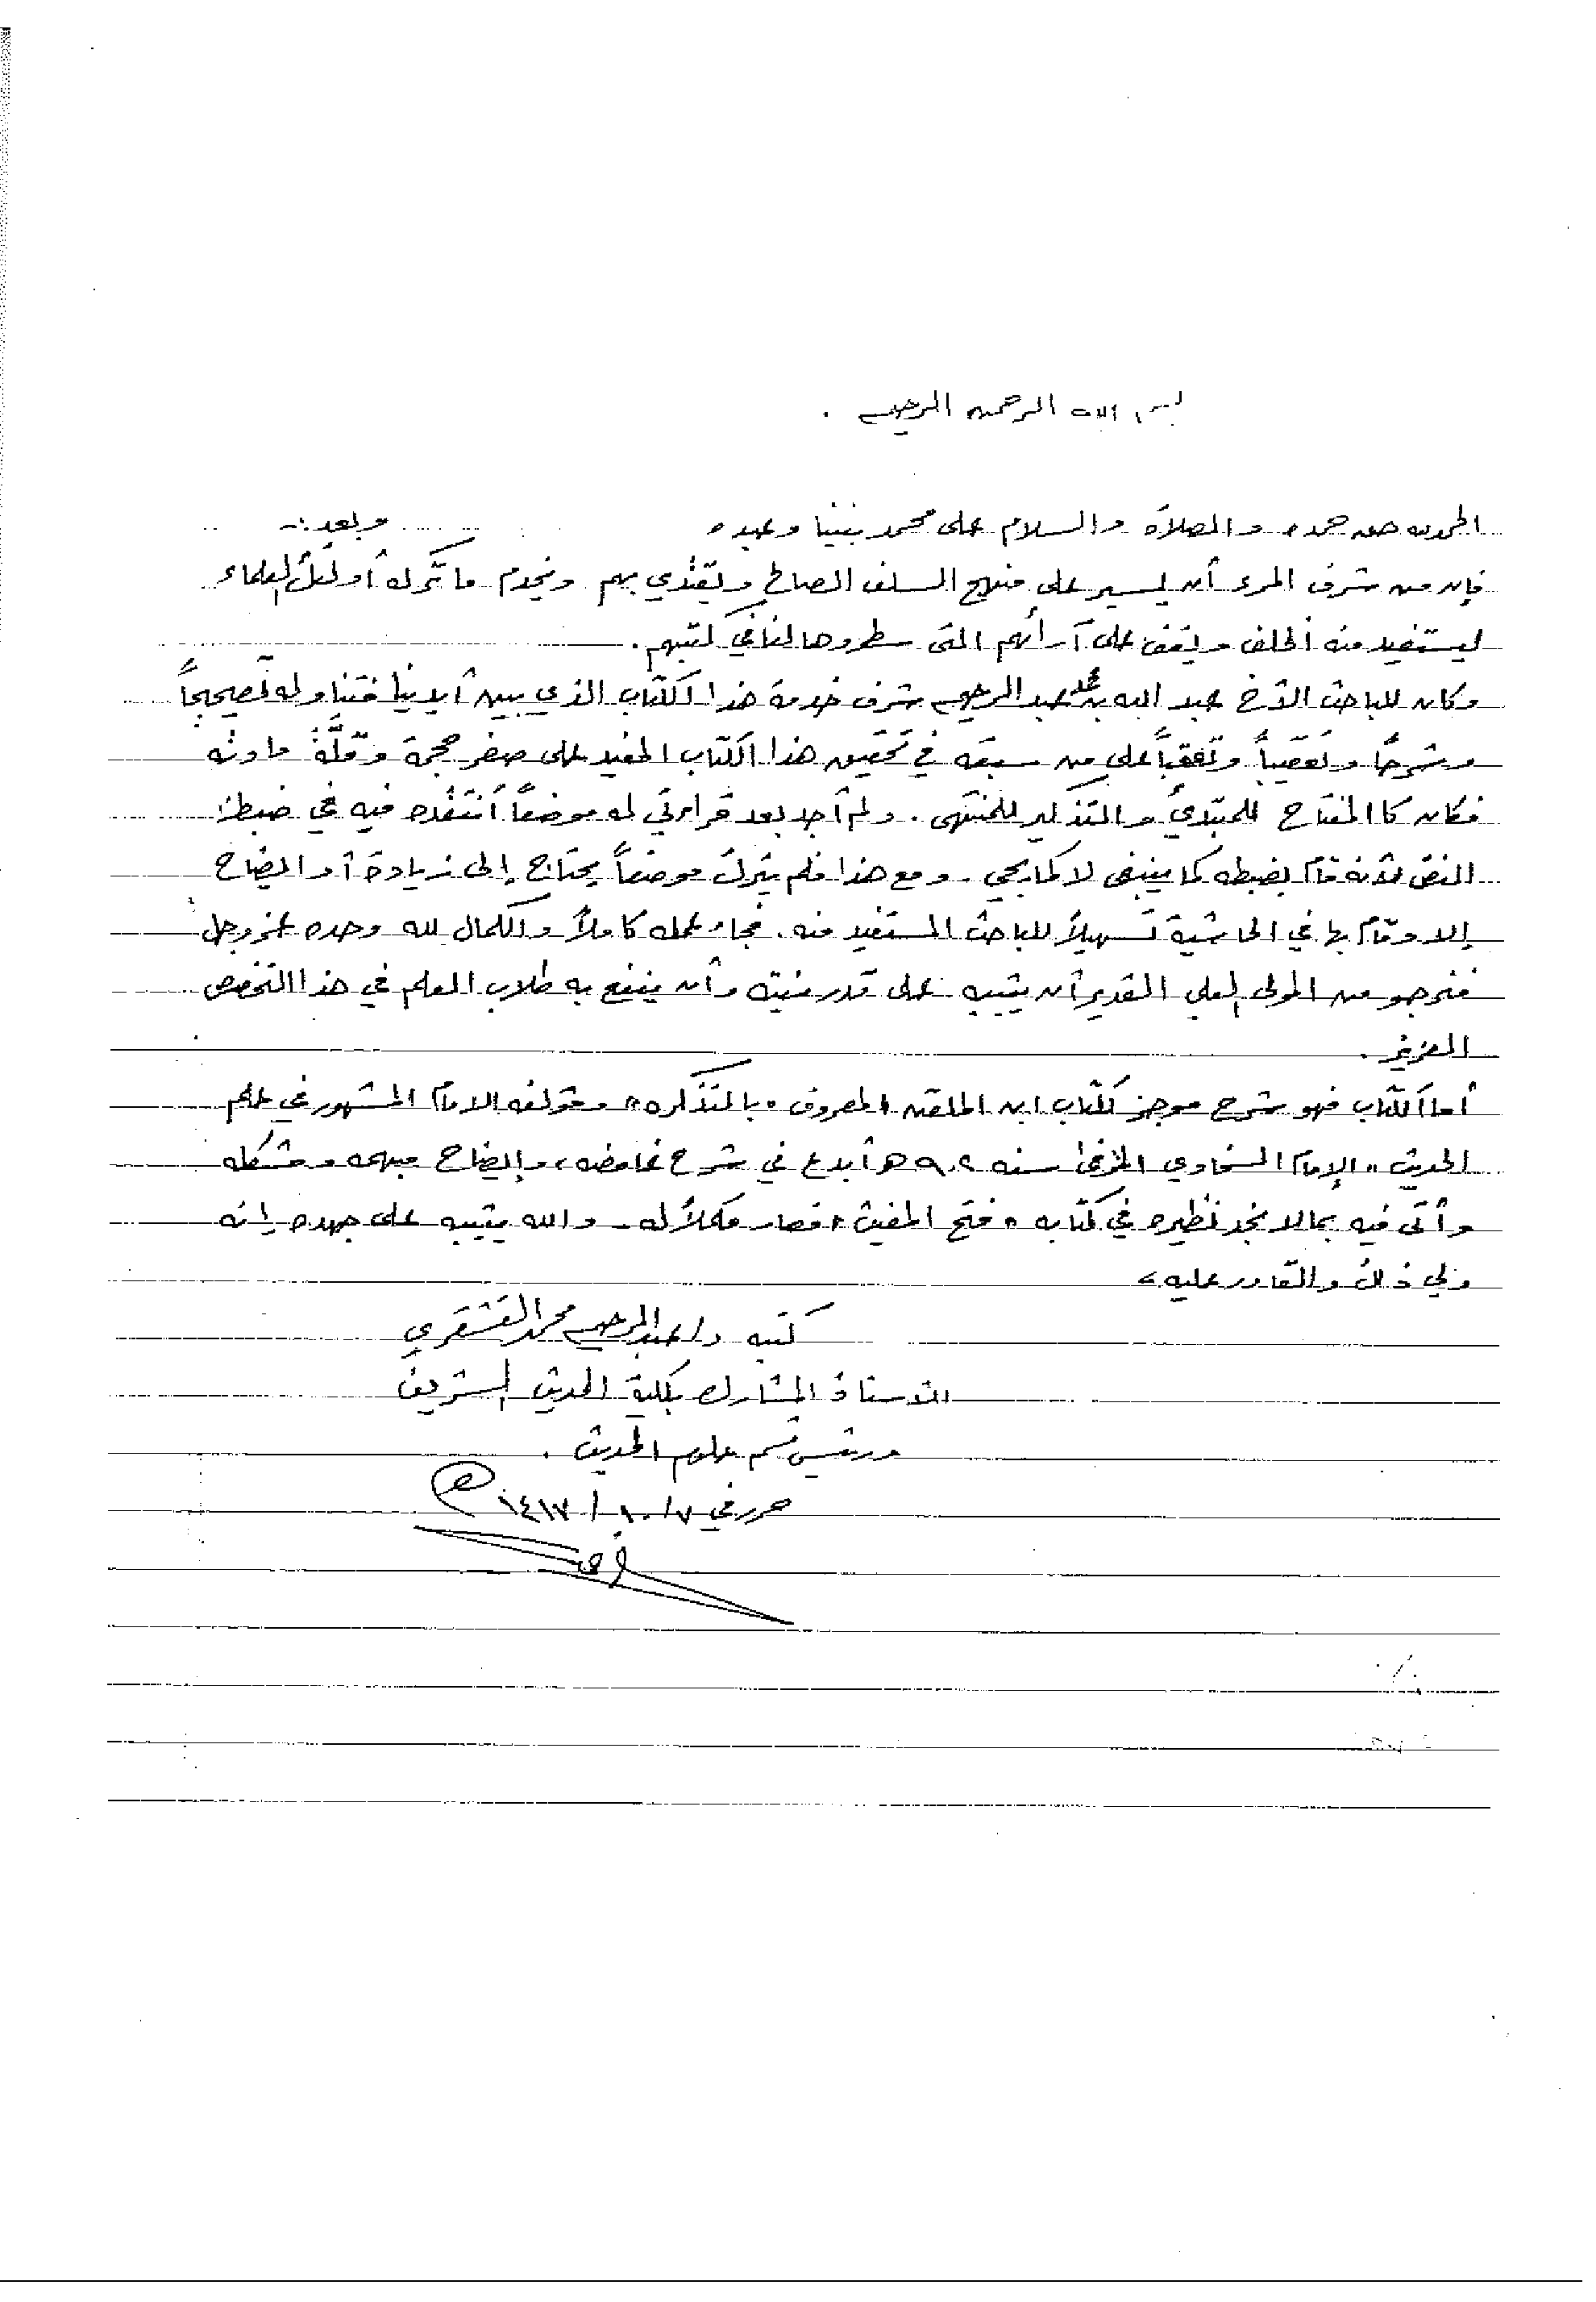 بسم الله الرحمن الرحيم .
الحمد لله حق حمده والصلاة والسلام على محمد نبينا وعبده وبعد :-
فإن من شرف المرء أن يسير على منهج السلف الصالح ويقتدي بهم ويخدم ما تركه أولئك العلماء
ليستفيد منه الخلف ويقف على آرائهم التى سطروها لنا في كتبهم .
وكان للباحث الأخ عبد الله بن محمد عبد الرحيم شرف خدمة هذا الكتاب الذي بين أيدينا فتناوله تصحيحاً
وشرحاً وتعقيباً وتعقباً على من سبقه في تحقيق هذا الكتاب المفيد على صغر حجمه وقلَّة مادته
فكان كا المفتاح للمبتدئ والتذكير للمنتهى . ولم أجد بعد قراءتي له موضعاً أنتقده فيه في ضبط
النص لأنه قام بضبطه كما ينبغى لا كما يجي . ومع هذا فلم يترك موضعاً يحتاج إلى زيادة أو ايضاح
إلا وقام بها في الحاشية تسهيلاً للباحث المستفيد منه . فجاء عمله كاملاً والكمال لله وحده عز وجل
فنرجو من المولى العلي القدير أن يثيبه على قدر نيته وأن ينفع به طلاب العلم في هذا التخصص
العزيز .
أما الكتاب فهو شرح موجز لكتاب ابن الملقن المعروف " بالتذكره " ومؤلفه الامام المشهور في علم
الحديث " الإمام السخاوي المتوفى سنه ٩٠٢ هـ أبدع في شرح غامضه ، وإيضاح مبهمه ومشكله
وأتى فيه بمالا نجد نظيره في كتابه " فتح المغيث " فصار مكملاً له - والله يثيبه على جهده إنه
ولي ذلك والقادر عليه ،
كتبه د/ عبد الرحيم محمد القشقري
الأستاذ المشارك بكلية الحديث الشريف
ورئيس قسم علوم الحديث .
حرر في ٧/١٠/١٤١٧ هـ